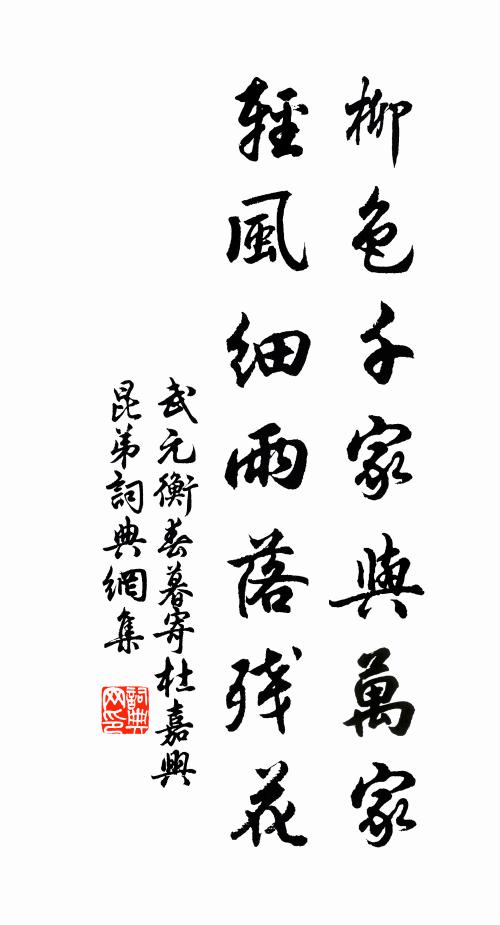 柳色千家與萬家
輕風細雨落残花
武元衡春暮寄杜嘉興
昆弟詞典網集
詞典网印